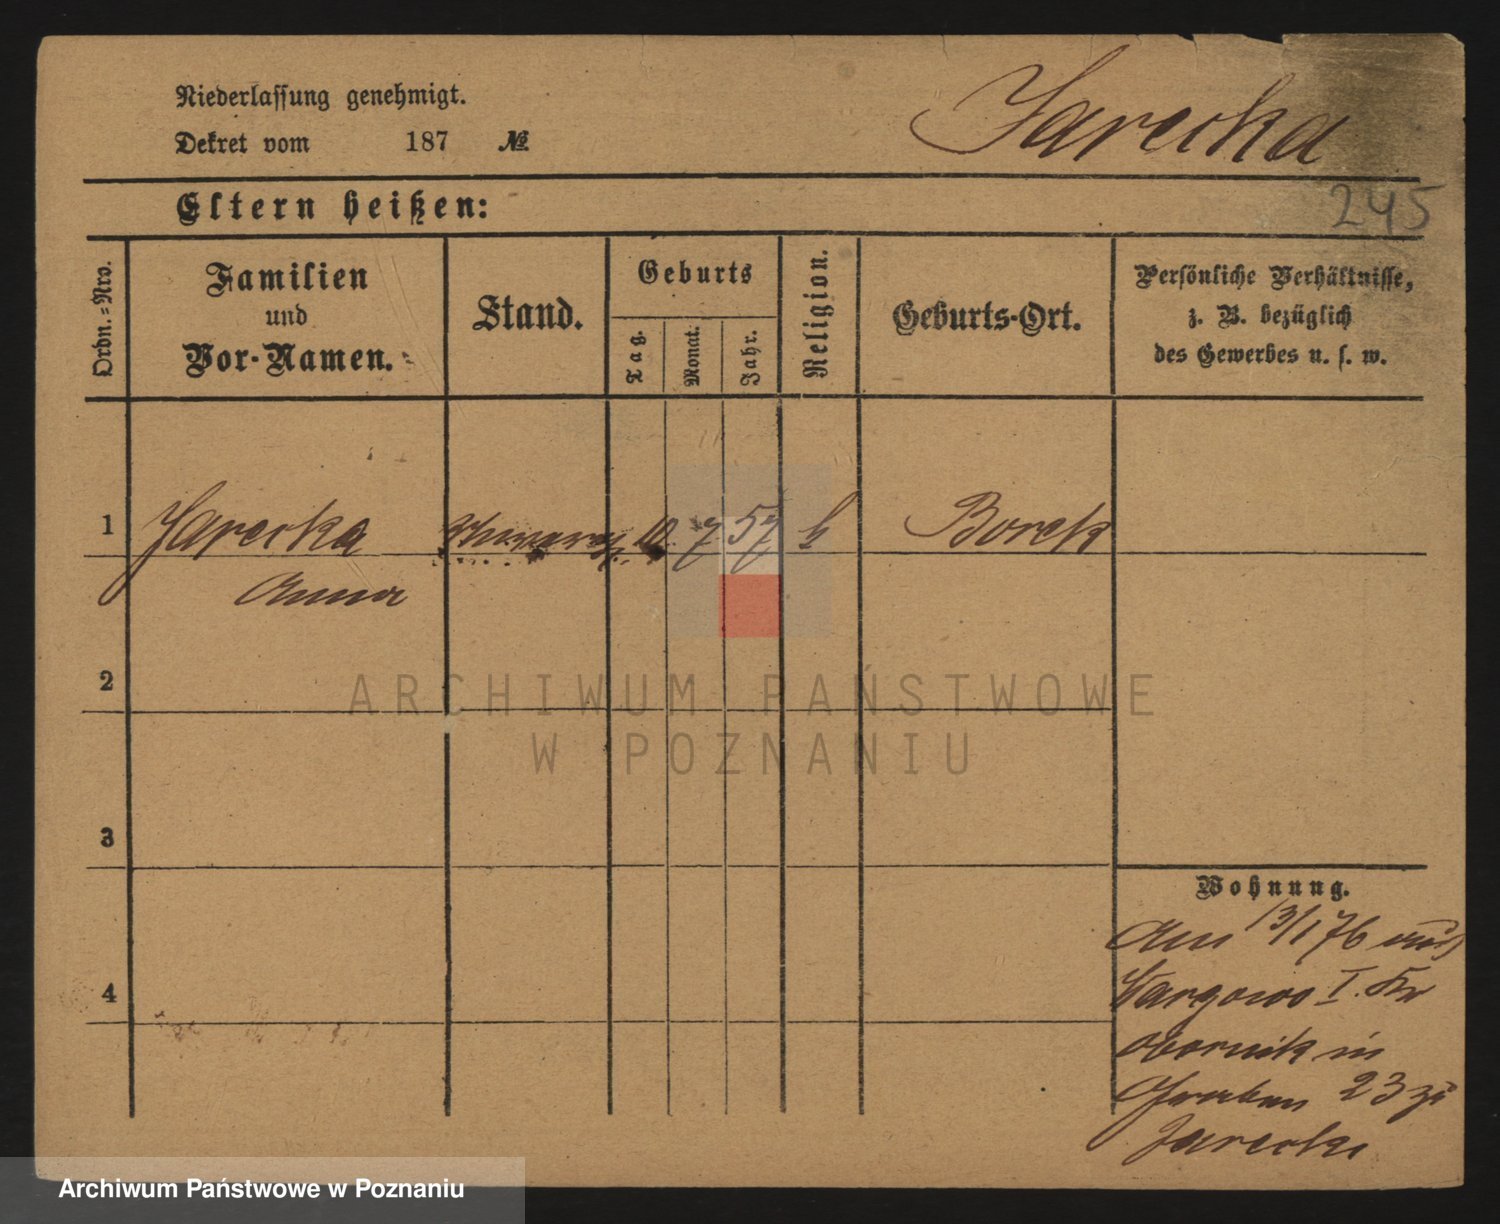 Niederlassung genehmigt.
Jarecka
Dekret vom 187 №
Eltern heißen:
245
Ordn.-Nro.
Familien
und
Vor-Namen.
Stand.
Geburts
Tag.
Monat.
Jahr.
Religion.
Geburts-Ort.
Persönliche Verhältnisse,
z. B. bezüglich
des Gewerbes u. s. w.
1 Jarecka 10 7 57 k Borek
Anna
2
3
4
Wohnung.
Am 13/1 76 aus
Wargowo I. Kr
Obornik in
Graben 23 zu
Jarecki
ARCHIWUM PAŃSTWOWE
W POZNANIU
Archiwum Państwowe w Poznaniu